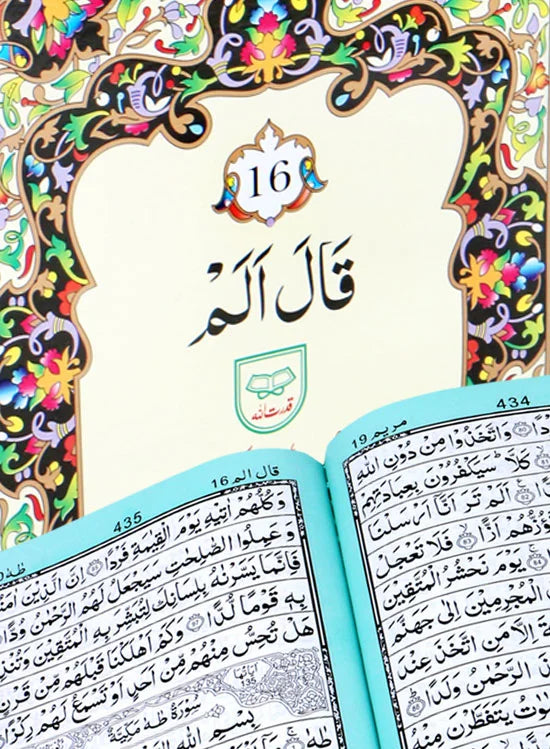 16
قَالَ اَلَمْ
قدرت الله
434
مريم 19
وَاتَّخَذُوْا مِنْ دُوْنِ اللّٰهِ
كَلَّا سَيَكْفُرُوْنَ بِعِبَادَتِهِمْ
اَلَمْ تَرَ اَنَّاۤ اَرْسَلْنَا
اَزًّا فَلَا تَعْجَلْ
يَوْمَ نَحْشُرُ الْمُتَّقِيْنَ
الْمُجْرِمِيْنَ اِلٰى جَهَنَّمَ
اِلَّا مَنِ اتَّخَذَ عِنْدَ
الرَّحْمٰنُ وَلَدًا
يَتَفَطَّرْنَ مِنْهُ
قال الم 16
435
طه
وَكُلُّهُمْ اٰتِيْهِ يَوْمَ الْقِيٰمَةِ فَرْدًا اِنَّ الَّذِيْنَ
وَعَمِلُوا الصّٰلِحٰتِ سَيَجْعَلُ لَهُمُ الرَّحْمٰنُ وُدًّا
فَاِنَّمَا يَسَّرْنٰهُ بِلِسَانِكَ لِتُبَشِّرَ بِهِ الْمُتَّقِيْنَ
بِهٖ قَوْمًا لُّدًّا وَكَمْ اَهْلَكْنَا قَبْلَهُمْ مِّنْ قَرْنٍ
هَلْ تُحِسُّ مِنْهُمْ مِّنْ اَحَدٍ اَوْ تَسْمَعُ لَهُمْ رِكْزًا
سُوْرَةُ طٰهٰ مَكِّيَّةٌ
بِسْمِ اللّٰهِ